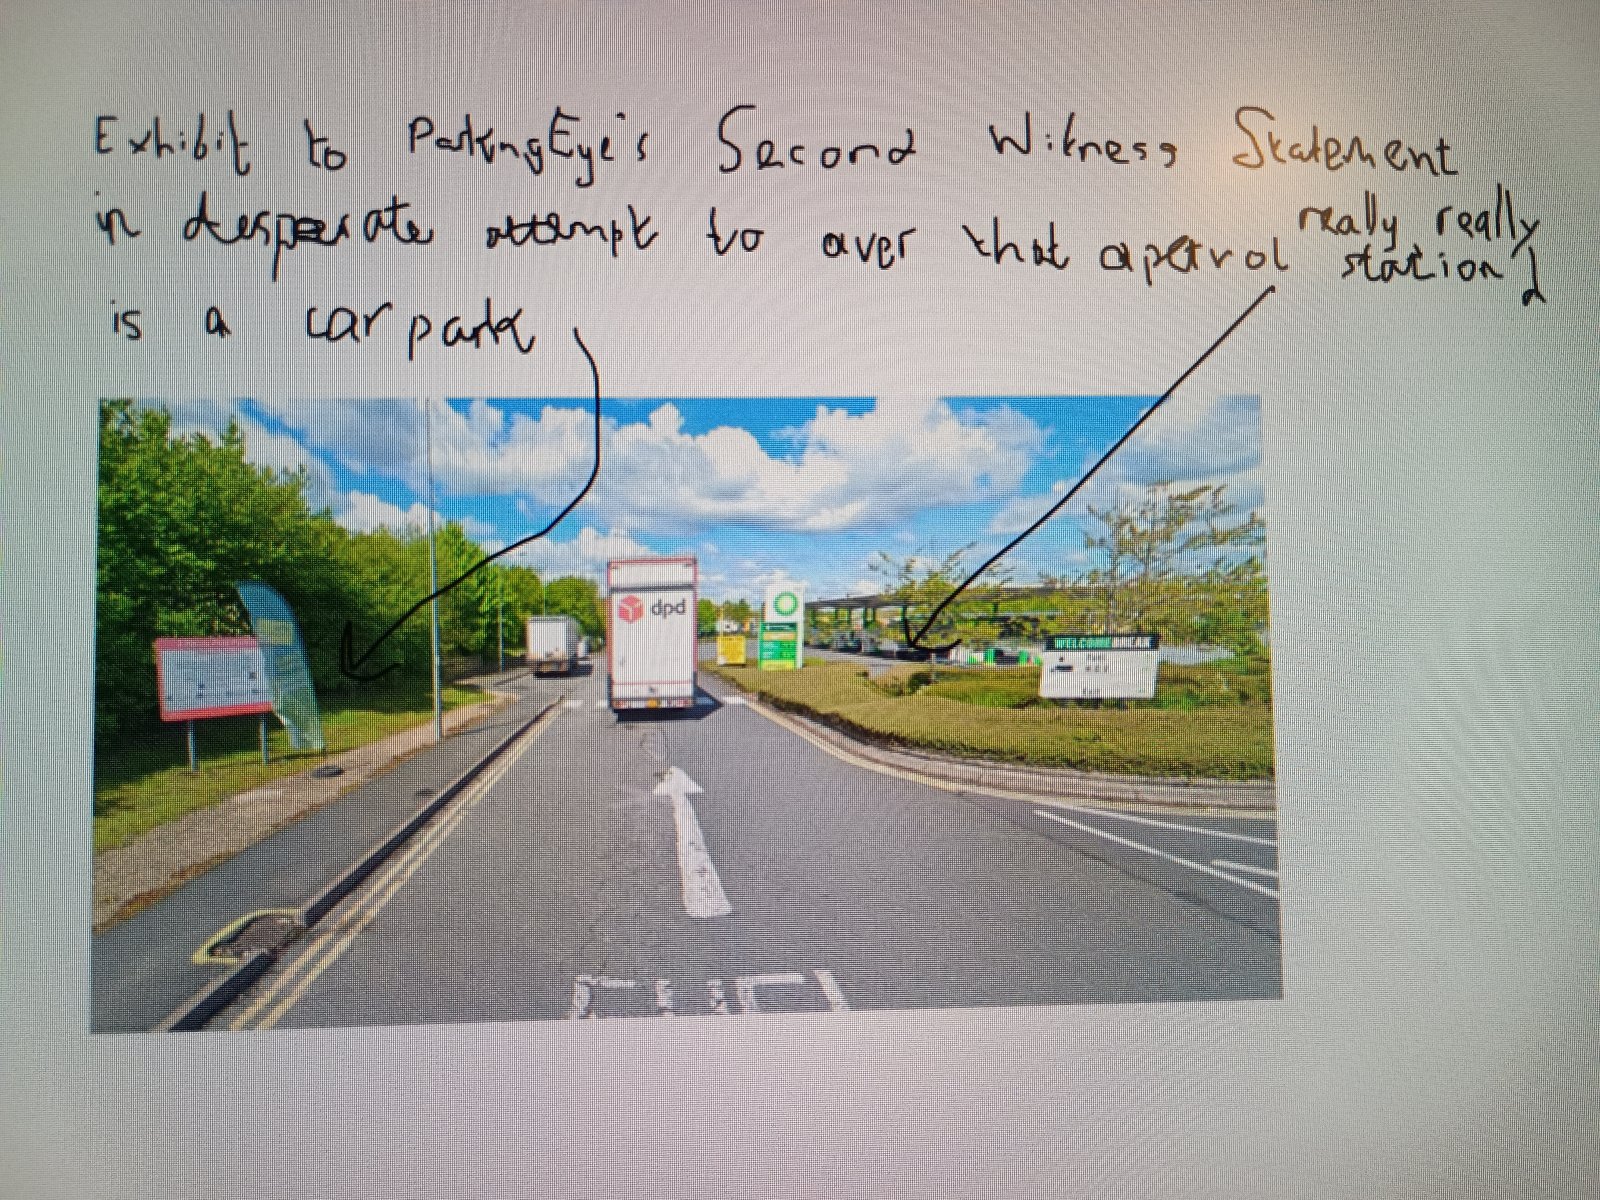 Exhibit to ParkingEye's Second Witness Statement
in desperate attempt to aver that a petrol really really station
is a car park
dpd
WELCOME BREAK
Fuel
Exit
FUEL